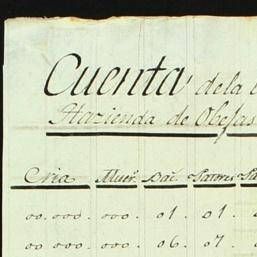 Cuenta de la
Hazienda de Obejas
Cria Muer.
00. 000. 000. 01. 01.
00. 000. 000. 06. 07.